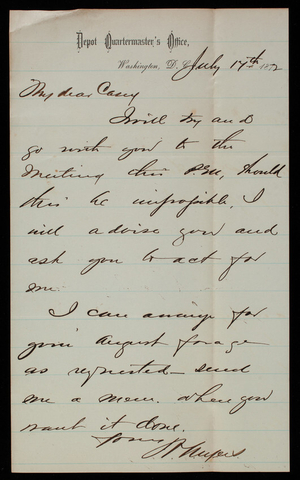 Depot Quartermaster's Office,
Washington, D. C. July 17th 1882
My dear Casey
I will try and
go with you to the
Meeting this P.M., should
this be impossible, I
will advise you and
ask you to act for
me.
I can arrange for
your August forage
as requested - send
me a mem. when you
want it done.
Yours